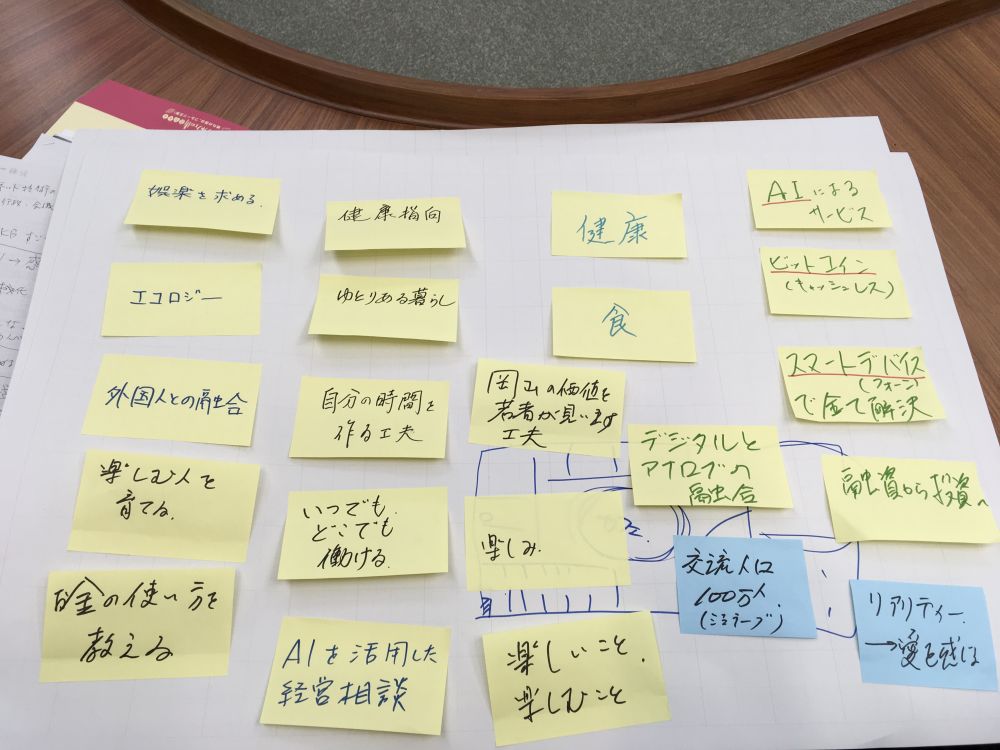 娯楽を求める.
健康指向
健康
AIによる
サービス
エコロジー
ゆとりある暮らし
食
ビットコイン
(キャッシュレス)
外国人との融合
自分の時間を
作る工夫
岡山の価値を
若者が見い出す
工夫
スマートデバイス
(フォーン)
で全て解決
楽しむ人を
育てる.
いつでも.
どこでも
働ける.
楽しみ.
デジタルと
アナログの
融合
融資から投資へ
お金の使い方を
教える
AIを活用した
経営相談
楽しいこと.
楽しむこと
交流人口
100万人.
リアリティー.
→愛を感じる